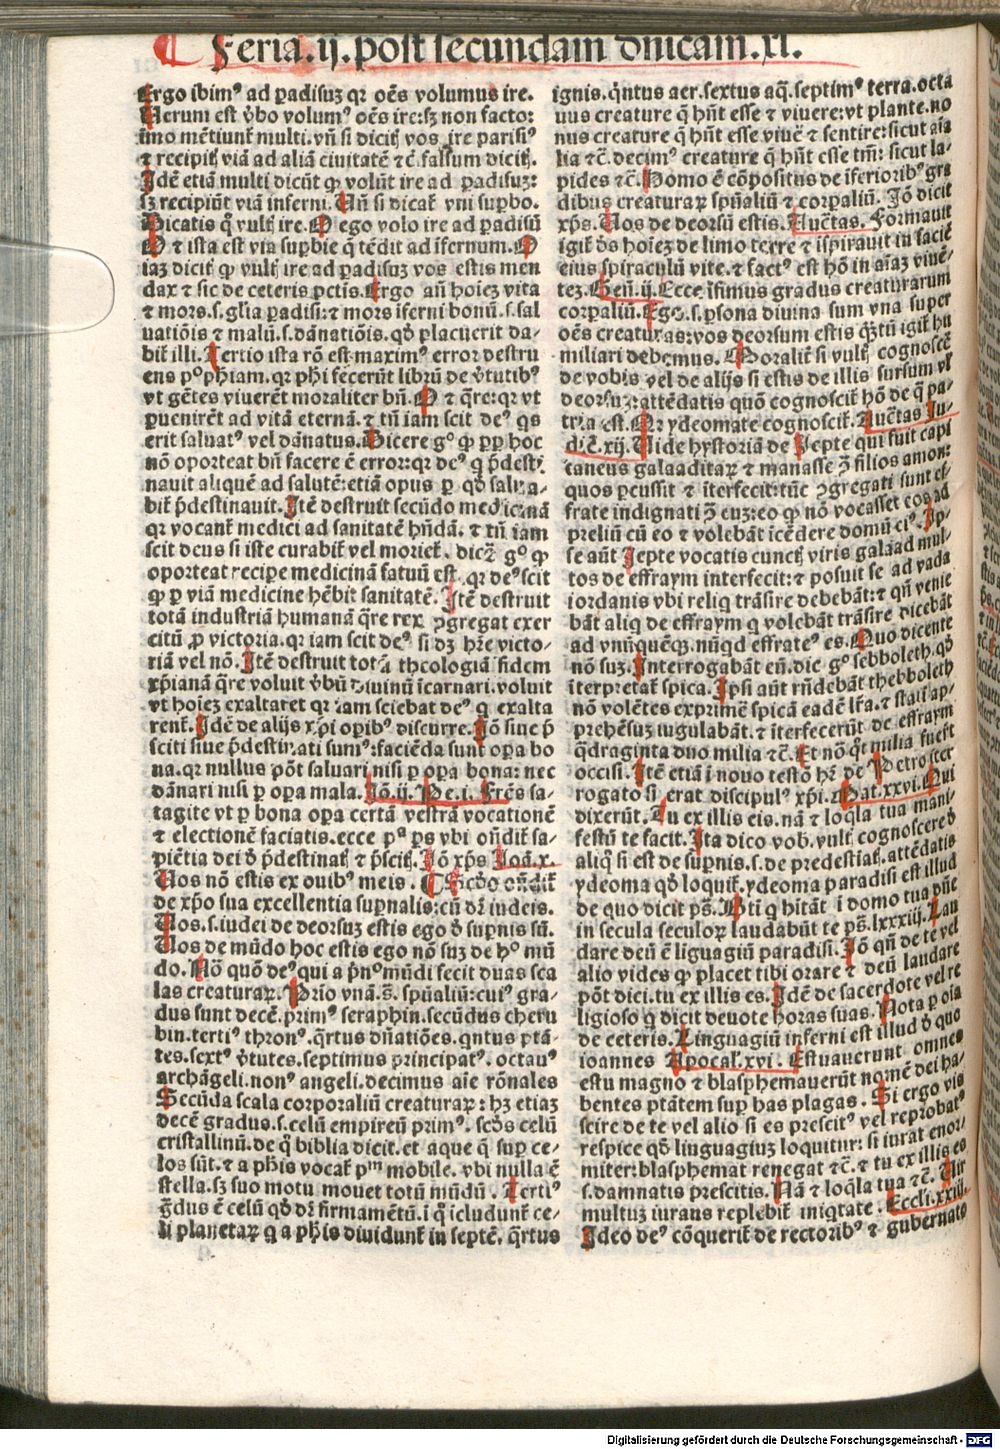 Feria.ij.post secundam dnicam.xl.
Ergo ibimꝰ ad ꝑadisuꝫ qꝛ oēs volumus ire.
Uerum est v̄bo volumꝰ oēs ire:sꝫ non facto:
imo mētiunt̉ multi.vn̄ si dicit̉ vos ire parisiꝰ
⁊ recipit̉ viā ad aliā ciuitatē ⁊c̄ falsum dicit̉.
Idē etiā multi dicūt ꝙ volūt ire ad ꝑadisuꝫ:
sꝫ recipiūt viā inferni. Un̄ si dicat̉ vni suꝑbo.
Dicatis q̄ vult̉ ire. O ego volo ire ad ꝑadisū
O ⁊ ista est via suꝑbie q̄ tēdit ad īfernum. O
iaꝫ dicit̉ ꝙ vult̉ ire ad ꝑadisuꝫ vos estis men
dax ⁊ sic de ceteris pctis. Ergo an̄ hoieꝫ vita
⁊ mors.s.glīa ꝑadisi:⁊ mors īferni bonū.s.sal
uatiōis ⁊ malū.s.dānatiōis.qd̄ placuerit da-
bit̉ illi. Tertio ista rō est maximꝰ error destru
ens p°phiam.qꝛ phi fecerūt librū de v̄tutibꝰ
vt gētes viuerēt moraliter bn̄. O ⁊ q̄re:qꝛ vt
ꝑuenirēt ad vitā eternā.⁊ tn̄ iam scit deꝰ qs
erit saluatꝰ vel dānatus. Dicere g° ꝙ ꝓpꝑ hoc
nō oporteat bn̄ facere ē error:qꝛ deꝰ q p̄desti
nauit aliquē ad salutē:etiā opus ꝑ qd̄ salua-
bit̉ p̄destinauit. Itē destruit secūdo medicinā
qꝛ vocant̉ medici ad sanitatē hn̄dā.⁊ tn̄ iam
scit deus si iste curabit̉ vel moriet̉. dicꝫ g° ꝙ
oporteat recipe medicinā fatuū est.qꝛ deꝰ scit
ꝙ ꝑ viā medicine hēbit sanitatē. Itē destruit
totā industriā humanā q̄re rex ꝯgregat exer
citū ꝓ victoria.qꝛ iam scit deꝰ si dꝫ hr̄e victo-
riā vel nō. Itē destruit totā theologiā fidem
xp̄ianā q̄re voluit v̄bū diuinū īcarnari.voluit
vt hoieꝫ exaltaret qꝛ iam sciebat deꝰ q exalta
rent̉. Idē de alijs xp̄i opibꝰ discurre. Iō siue p̄
sciti siue p̄destinati sumꝰ:faciēda sunt oꝑa bo
na.qꝛ nullus pōt saluari nisi ꝑ oꝑa bona: nec
dānari nisi ꝑ oꝑa mala. Iō.ij. Pe.i. Frēs sa-
tagite vt ꝑ bona oꝑa certā vestrā vocationē
⁊ electionē faciatis.ecce pᵃ ps vbi on̄dit̉ sa-
piētia dei d̄ p̄destinat̉ ⁊ p̄scit̉. Iō xp̄s Joā.x.
Uos nō estis ex ouibꝰ meis. Scd̄o on̄dit̉
de xp̄o sua excellentia suꝑnalis:cū dr̄ iudeis.
Uos.s.iudei de deorsuꝫ estis ego d̄ suꝑnis sū.
Uos de mūdo hoc estis ego nō suꝫ de h° mū
do. Nō quō deꝰ qui a pn̄°mūdi fecit duas sca
las creaturaꝝ. Prīo vnā.s. spūaliū:cuiꝰ gra-
dus sunt decē.primꝰ seraphin.secūdus cheru
bin.tertiꝰ thronꝰ.q̄rtus dn̄atiōes.qntus ptā-
tes.sextꝰ v̄tutes.septimus principatꝰ.octauꝰ
archāgeli.nonꝰ angeli.decimus aīe rōnales
Secūda scala corporaliū creaturaꝝ: hꝫ etiaꝫ
decē gradus.s.celū empireū primꝰ. scd̄s celū
cristallinū.de q̄ biblia dicit.et aque q̄ suꝑ ce-
los sūt.⁊ a phis vocat̉ pᵐ mobile.vbi nulla ē
stella.sꝫ suo motu mouet totū mūdū. Tertiꝰ
gdus ē celū qd̄ dr̄ firmamētū.ī q̄ īcludunt̉ ce-
li planetaꝝ q a phis diuidunt̉ in septē. q̄rtus
ignis.qntus aer.sextus aq̄.septimꝰ terra.octa
uus creature q̄ hn̄t esse ⁊ viuere:vt plante.no
nus creature q̄ hn̄t esse viuē ⁊ sentire:sicut aīa
lia ⁊c̄.decimꝰ creature q̄ hn̄t esse tm̄: sicut la-
pides ⁊c̄. Homo ē cōpositus de īferioribꝰ gra
dibus creaturaꝝ spūaliū ⁊ corpaliū. Iō dicit
xp̄s. Uos de deorsū estis. Auctas. Formauit
igit̉ d̄s hoieꝫ de limo terre ⁊ īspirauit in faciē
eius spiraculū vite.⁊ factꝰ est hō in aīaꝫ viuē-
teꝫ. Gen̄.ij. Ecce īfimus gradus creaturarum
corpaliū. Ego.s.ꝑsona diuina sum vna super
oēs creaturas:vos deorsum estis q̄ꝫtū igit̉ hu
miliari debemus. Moralit̉ si vult̉ cognoscē
de vobis vel de alijs si estis de illis sursum vl
deorsuꝫ:attēdatis quō cognoscit̉ hō de q̄ pa-
tria est. Pr ydeomate cognoscit̉. Auctas Ju-
dic̄.xij. Uide hystoriā de Jepte qui fuit capi
taneus galaaditaꝝ ⁊ manasse ꝯ̄ filios amon:
quos ꝑcussit ⁊ īterfecit:tūc ꝯgregati sunt ef-
frate indignati ꝯ̄ euꝫ:eo ꝙ nō vocasset eos ad
preliū cū eo ⁊ volebāt īcēdere domū eiꝰ. Ip-
se aūt Jepte vocatis cunctꝭ viris galaad mul
tos de effraym interfecit:⁊ posuit se ad vada
iordanis vbi reliq trāsire debebāt:⁊ qn̄ venie
bāt aliq de effraym q volebāt trāsire dicebāt
ad vnūquēqꝫ.nūqd effrateꝰ es. Quo dicente
nō suꝫ. Interrogabāt eū.dic g° sebboleth.qd̄
īterpretat̉ spica. Ipsi aūt rn̄debāt thebboleth
nō volētes exprimē spicā eadē lr̄a.⁊ stati ap-
prehēsuꝫ iugulabāt.⁊ īterfecerūt de effraym
q̄draginta duo milia ⁊c̄. Et nō q̄t milia fuerūt
occisi. Itē etiā ī nouo testō hr̄ de Petro:ter
rogato si erat discipulꝰ xp̄i. Mat.xxvi. Qui
dixerūt. Tu ex illis eis.nā ⁊ loq̄la tua mani-
festū te facit. Ita dico vob.vult̉ cognoscere d̄
aliq̄ si est de suꝑnis.s.de predestiatꝭ.attēdatis
ydeoma qd̄ loquit̉.ydeoma paradisi est illud
de quo dicit ps̄. Btī q hitāt ī domo tua dn̄e
in secula seculoꝝ laudabūt te ps̄.lxxxiij. Lau
dare deū ē liguagiū paradisi. Iō qn̄ de te vel
alio vides ꝙ placet tibi orare ⁊ deū laudare
pōt dici.tu ex illis es. Idē de sacerdote vel re
ligioso q dicit deuote horas suas. Nota ꝑ oīa
de ceteris. Linguagiū inferni est illud d̄ quo
ioannes Apocal̉.xvi. Estuauerunt omnes
estu magno ⁊ blasphemauerūt nomē dei ha-
bentes ptātem suꝑ has plagas. Si ergo vis
scire de te vel alio si es prescitꝰ vel reprobatꝰ
respice qd̄ linguagiuꝫ loquitur: si iurat enor-
miter:blasphemat renegat ⁊c̄.⁊ tu ex illis es
s.damnatis prescitis. Nā ⁊ loq̄la tua ⁊c̄. Uir
multuꝫ iurans replebit̉ iniqtate. Eccli.xxiij.
Ideo deꝰ cōquerit̉ de rectoribꝰ ⁊ gubernato
Digitalisierung gefördert durch die Deutsche Forschungsgemeinschaft - DFG